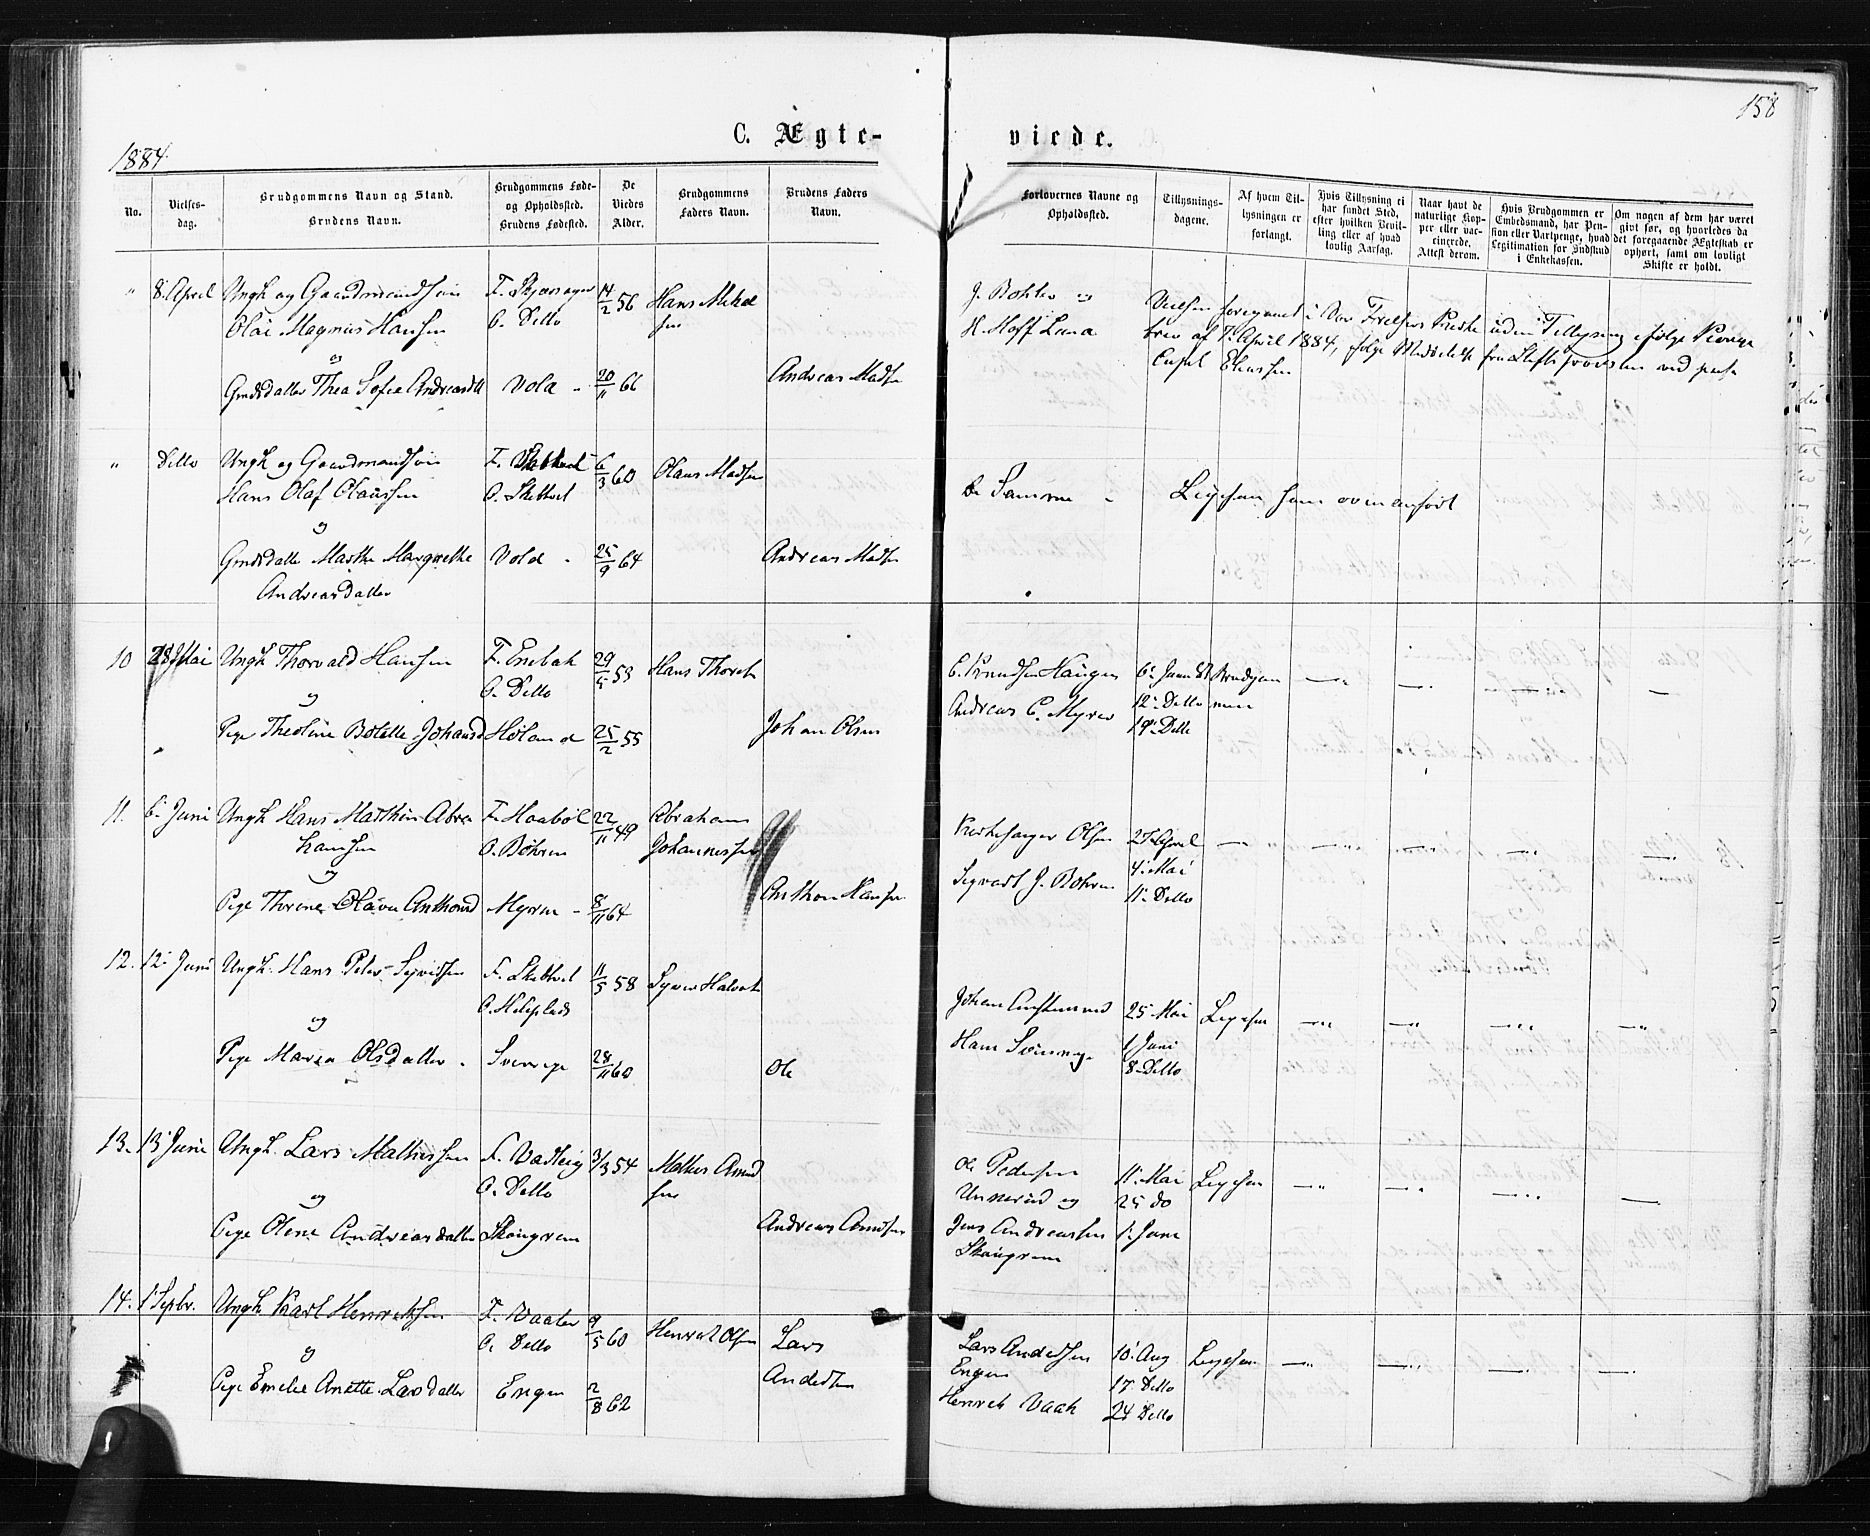 158
1884
C. Ægte-
viede.
No.
Vielses-
dag.
Brudgommens Navn og Stand.
Brudens Navn.
Brudgommens Føde-
og Opholdssted.
Brudens Fødested.
De
Viedes
Alder.
Brudgommens
Faders Navn.
Brudens Faders
Navn.
Forlovernes Navne og
Opholdssted.
Tillysnings-
dagene.
Af hvem Til-
lysningen er
forlangt.
Hvis Tillysning ei
har fundet Sted,
efter hvilken Bevil-
ling eller af hvad
lovlig Aarsag.
Naar havt de
naturlige Kop-
per eller vac-
cinerede.
Attest derom.
Hvis Brudgommen er
Embedsmand, har Pen-
sion eller Vartpenge, hvad
Legitimation for Indskud
i Enkekassen.
Om nogen af dem har været
givt før, og hvorledes da
det foregaaende Ægteskab er
ophørt, samt om lovligt
Skifte er holdt.
" 8 April Ungk og Gaardmandsøn
Olai Magnus Hansen
og
Grndsdatter Thea Sofie Andreasdtt
F.
O. Ditto
Vold
14/2 56
20/11 66
Hans
sen
Andreas Madsen
J. Bohler og
H. Hoff Lund
Vielsen foregaaet i Vor Frelsers Kirke uden Tillysning ifølge
brev af 7. April 1884, ifølge Meddelelse fra Stiftsprovsten ved
" Ditto Ungk og Gaardmandsøn
Hans Olaf Olaussen
og
Grndsdatter Marthe Margrethe
Andreasdatter
F.
O. Skedtvet
Vold
6/3 60
25/9 64
Olaus Madsen
Andreas Madsen
De Samme
Ligesom ovenanført
10 28 Mai Ungk Thorvald Hansen
og
Pige Theoline Botelle Johansd
F. Enebak
O. Ditto
Høland
29/5 53
25/2 55
Hans
Johan Olsen
C. Knudsen Haugen
Andreas C. Myrer
12. Ditto
19. Ditto
Brudgom
men
11. 6. Juni Ungk Hans Mathias Abra
hamsen
og
Pige Thorine Olava Anthonsd
F. Haabøl
O. Bøhren
Myren
22/11 49
8/11 64
Abraham
Johannessen
Anthon Hansen
Kirkesanger Olsen
Sigvart J. Bøhren
27 April
4. Mai
11. Ditto
12. 12. Juni Ungk. Hans Peter
og
Pige Maren Olsdatter
F. Skedtvet
O.
Sverrige
11/5 58
28/11 60
Syver
Ole
Johan
Hans
25 Mai
1 Juni
8. Ditto
Ligesom
13. 13 Juni Ungk. Lars Mathissen
og
Pige Oline Andreasdatter
F.
O. Ditto
Skougrem
3/3 54
Mathis Amund
sen
Andreas Amundsen
Ole Pedersen
Unnerud og
Jens Andreassen
Skougrem
11. Mai
25 do
1. Juni
Ligesom
14. 1 Septbr. Ungk Karl Henriksen
og
Pige Emelie Anette Larsdatter
F. Vaaler
O. Ditto
Engen
9/5 60
2/8 62
Henrik Olsen
Lars
Andersen
Lars Andersen
Engen
Henrik Vaak
10. Aug
17. Ditto
24 Ditto
Ligesom